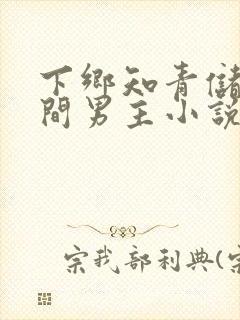 下鄉知青儲
間男主小說
宗我部利典(宗